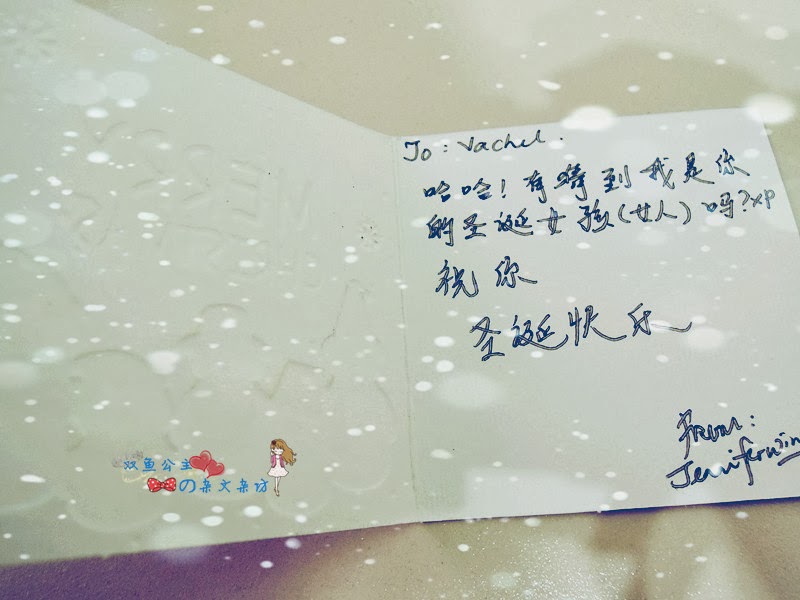 To: Vachel.
哈哈!有猜到我是你
的圣诞女孩(女人)吗?xp
祝你
圣诞快乐
From:
Jenniferxin
双鱼公主
の杂文杂坊